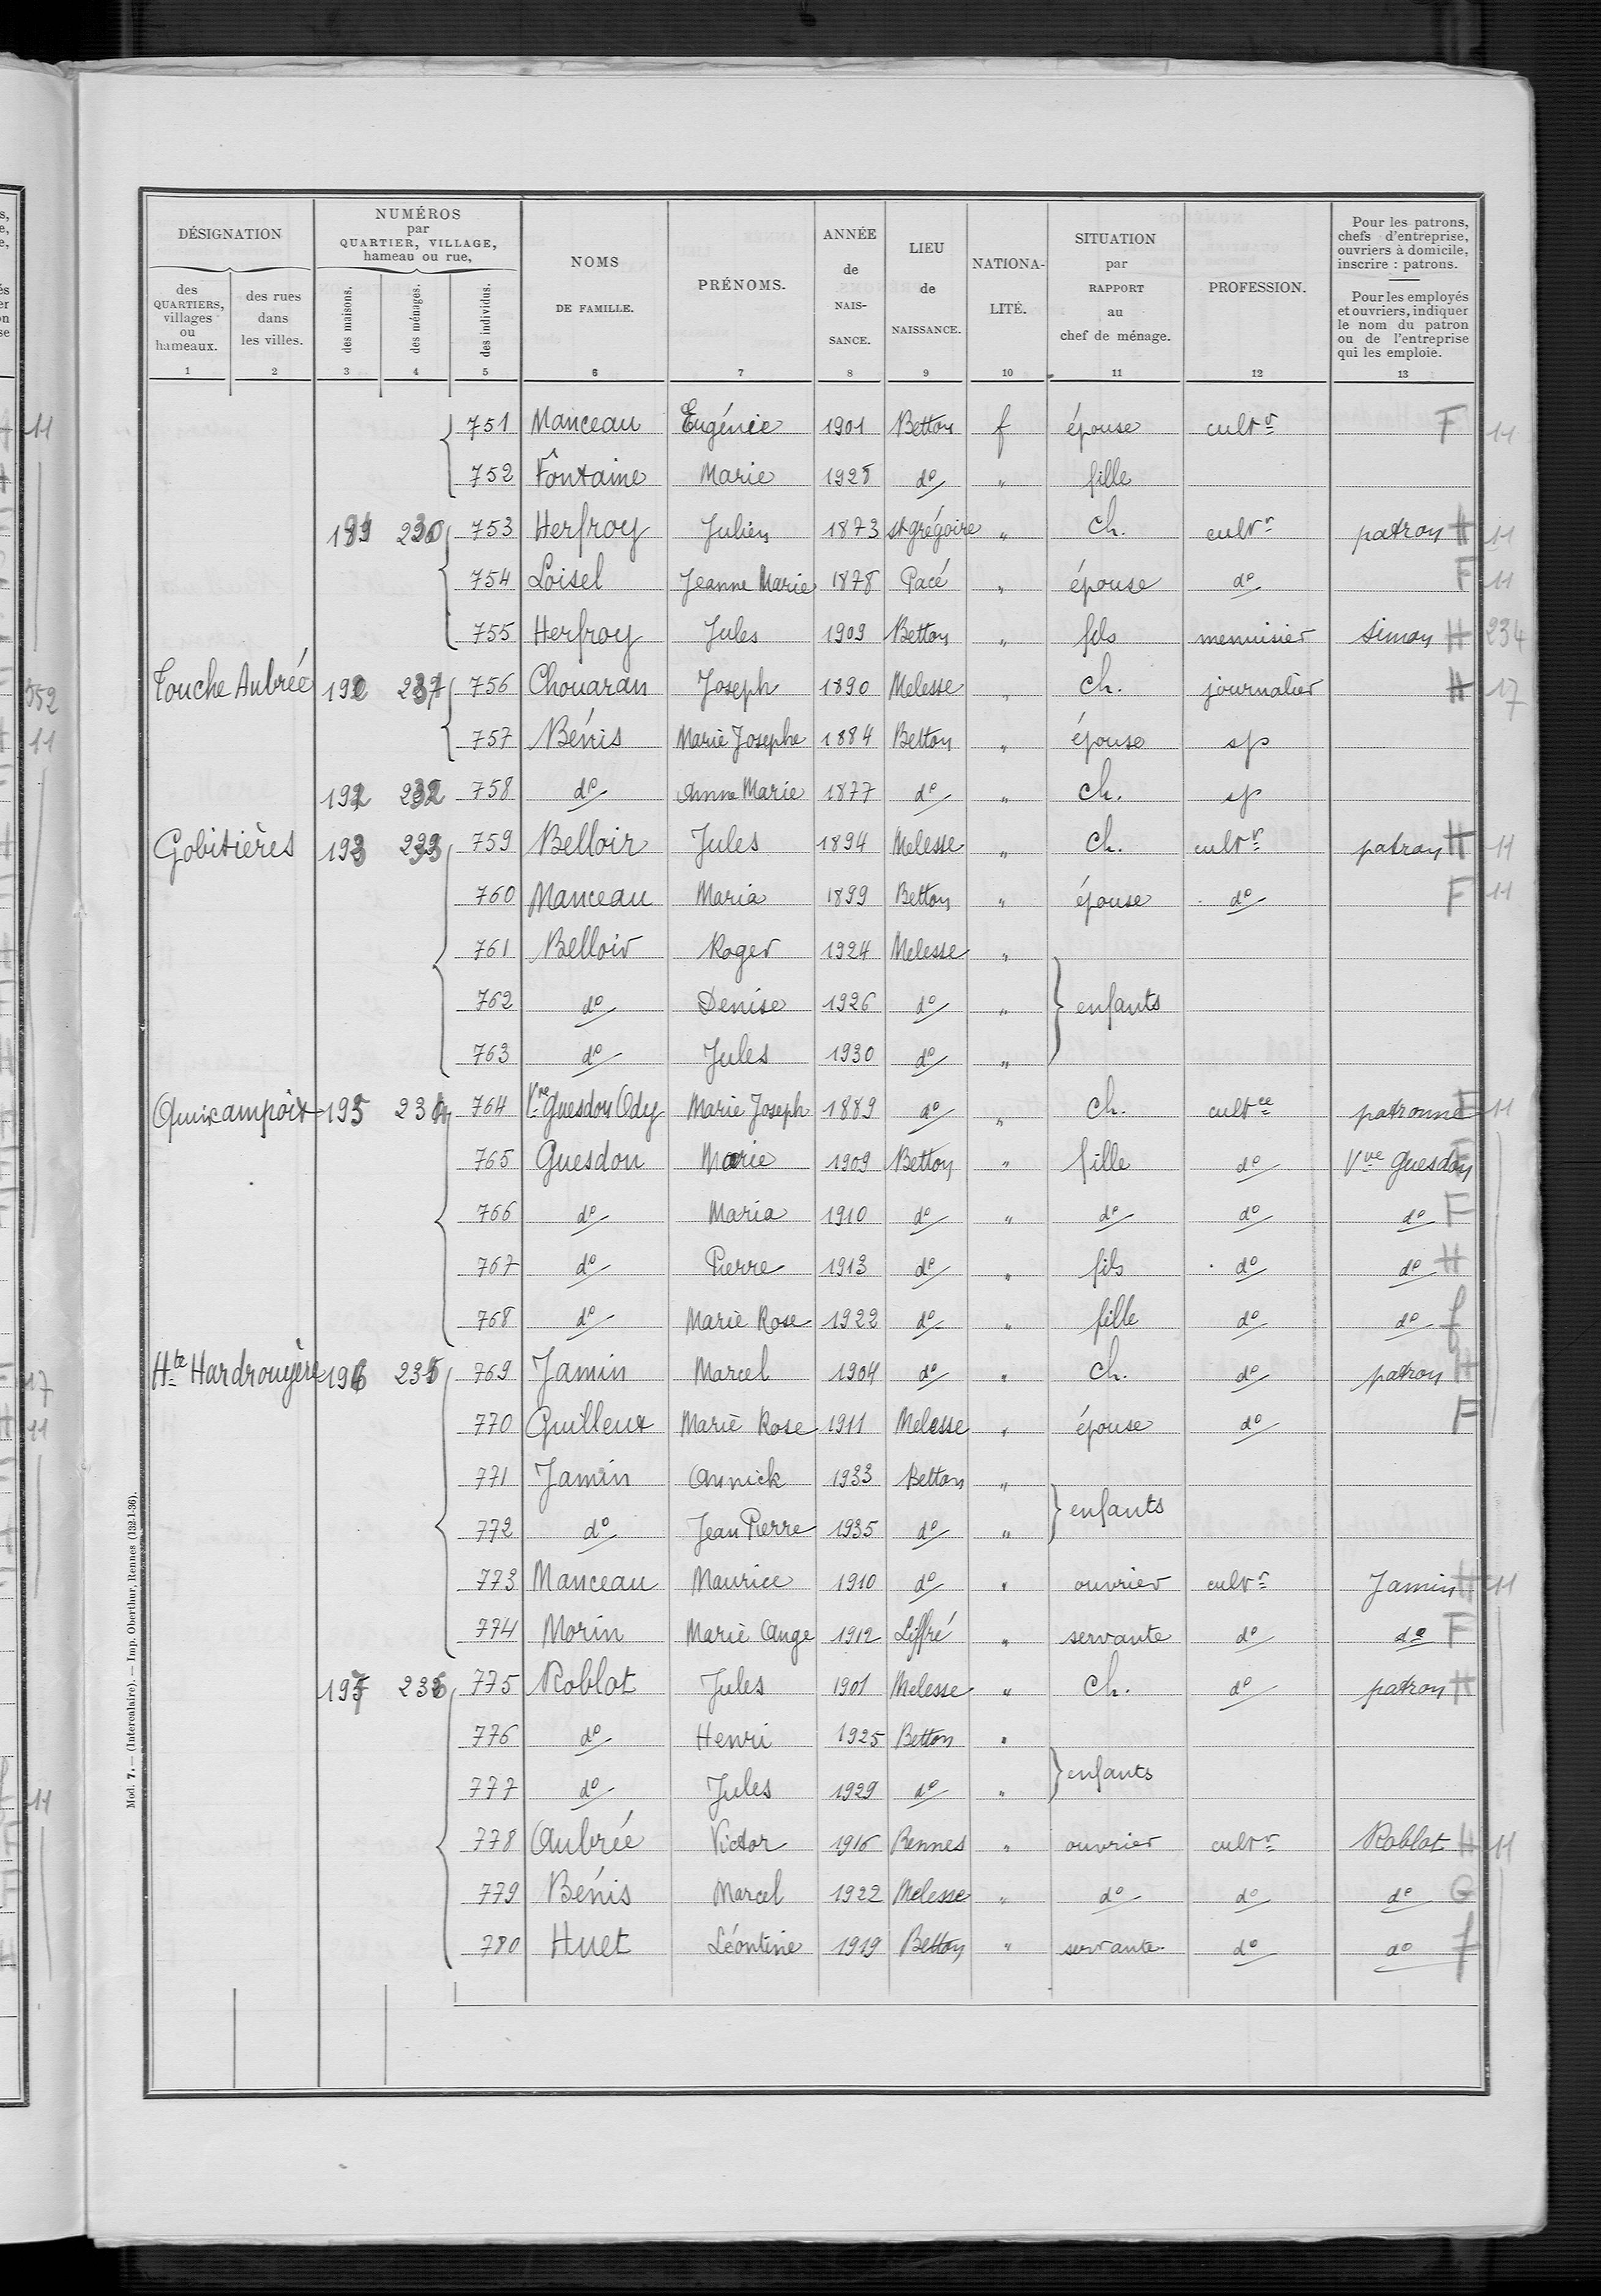 DÉSIGNATION
NUMÉROS
par
QUARTIER, VILLAGE,
hameau ou rue,
NOMS
DE FAMILLE.
PRÉNOMS.
ANNÉE
de
NAIS-
SANCE.
LIEU
de
NAISSANCE.
NATIONA-
LITÉ.
SITUATION
par
RAPPORT
au
chef de ménage.
PROFESSION.
Pour les patrons,
chefs d'entreprise,
ouvriers à domicile,
inscrire : patrons.
Pour les employés
et ouvriers, indiquer
le nom du patron
ou de l'entreprise
qui les emploie.
des
QUARTIERS,
villages
ou
hameaux.
des rues
dans
les villes.
des maisons.
des ménages.
des individus.
1 2 3 4 5 6 7 8 9 10 11 12 13
751 Manceau Eugénie 1901 Betton f épouse cultr F 11
752 Fontaine Marie 1928 do " fille
230 753 Herfroy Julien 1873 St grégoire " ch. cultr patron H 11
754 Loisel Jeanne Marie 1878 Pacé " épouse do F 11
755 Herfroy Jules 1909 Betton " fils menuisier Simon H 234
Touche Aubrée 756 Chouaran Joseph 1890 Melesse " ch. journalier H 17
757 Bénis Marie Josephe 1884 Betton " épouse sp
232 758 do Anne Marie 1877 do " ch. sp
Gobitières 193 233 759 Belloir Jules 1894 Melesse " ch. cultr patron H 11
760 Manceau Maria 1899 Betton " épouse do F 11
761 Belloir Roger 1924 Melesse "
762 do Denise 1926 do " enfants
763 do Jules 1930 do "
Quincampoix 195 234 764 Vve Guesdon Ody Marie Joseph 1889 do " ch. cultce patronne F 11
765 Guesdon Marie 1909 Betton " fille do Vve Guesdon F
766 do Maria 1910 do " do do do F
767 do Pierre 1913 do " fils do do H
768 do Marie Rose 1922 do " fille do do f
Hte Hardrouyère 196 235 769 Jamin Marcel 1904 do " ch. do patron H
770 Guilleux Marie Rose 1911 Melesse " épouse do F
771 Jamin Annick 1933 Betton "
772 do Jean Pierre 1935 do " enfants
773 Manceau Maurice 1910 do " ouvrier cultr Jamin H 11
774 Morin Marie Ange 1912 Liffré " servante do do F
197 236 775 Roblot Jules 1901 Melesse " ch. do patron H
776 do Henri 1925 Betton "
777 do Jules 1929 do " enfants
778 Aubrée Victor 1916 Rennes " ouvrier cultr Roblot H 11
779 Bénis Marcel 1922 Melesse " do do do G
780 Huet Léontine 1919 Betton " servante do do f
Mod. 7. — (Intercalaire). — Imp. Oberthur, Rennes (132-1-36).